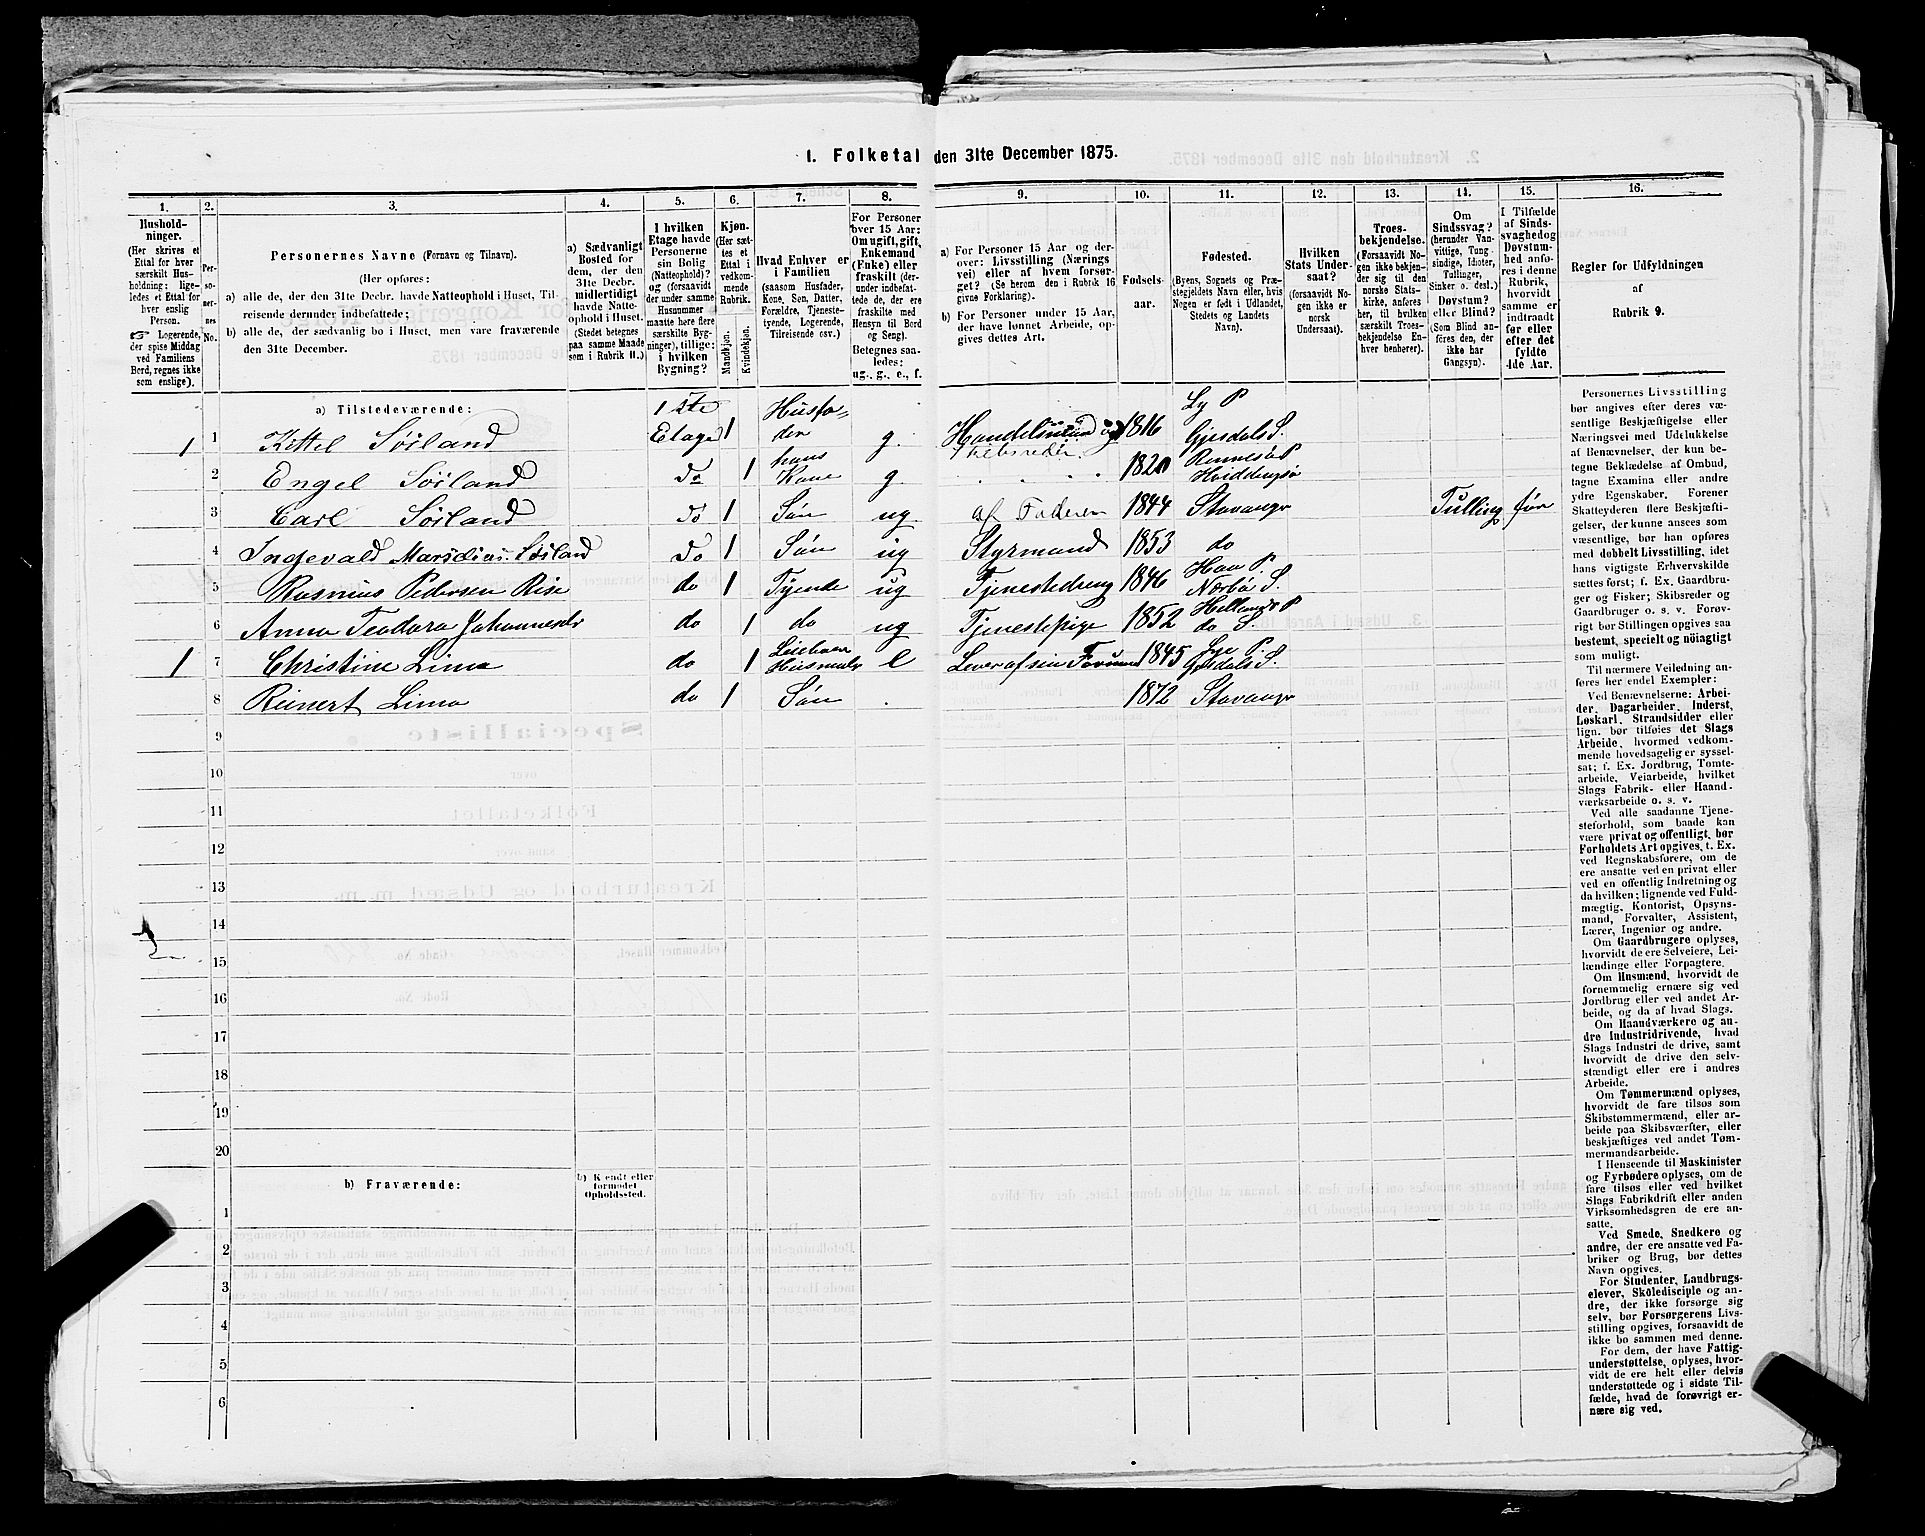 1. Folketal den 31te December 1875.
1.
2.
3.
4.
5.
6.
7.
8.
9.
10.
11.
12.
13.
14.
15.
16.
Hushold-
ninger.
(Her skrives et
Ettal for hver
særskilt Hus-
holdning; lige-
ledes et Ettal for
hver enslig
Person.
Logerende,
der spise Middag
ved Familiens
Bord, regnes ikke
som enslige).
Per-
so-
ner-
nes
No.
Personernes Navne (Fornavn og Tilnavn).
(Her opføres:
a) alle de, der den 31te Decbr. havde Natteophold i Huset, Til-
reisende derunder indbefattede;
b) alle de, der sædvanlig bo i Huset, men vare fraværende
den 31te December.
a) Sædvanligt
Bosted for
dem, der den
31te Decbr.
midlertidigt
havde Natte-
ophold i Huset.
(Stedet betegnes
paa samme Maade
som i Rubrik 11.)
I hvilken
Etage havde
Personerne
sin Bolig
(Natteophold)?
og (forsaavidt
der under samme
Husnummer
maatte høre flere
særskilte Byg-
ninger), tillige:
i hvilken
Bygning?
Kjøn.
(Her sæt-
tes et
Ettal i
vedkom-
mende
Rubrik.
Mandkjøn.
Kvindekjøn.
Hvad Enhver er
i Familien
(saasom Husfader,
Kone, Søn, Datter,
Forældre, Tjeneste-
tyende, Logerende,
Tilreisende osv.)
For Personer
over 15 Aar:
Om ugift, gift,
Enkemand
(Enke) eller
fraskilt (der-
under indbefat-
tede de, der ere
fraskilte med
Hensyn til Bord
og Seng).
Betegnes saa-
ledes:
ug., g., e., f.
a) For Personer 15 Aar og der-
over: Livsstilling (Nærings-
vei) eller af hvem forsør-
get? (Se herom den i Rubrik 16
givne Forklaring).
b) For Personer under 15 Aar,
der have lønnet Arbeide, op-
gives dettes Art.
Fødsels-
aar.
Fødested.
(Byens, Sognets og Præ-
stegjeldets Navn eller, hvis
Nogen er født i Udlandet,
Stedets og Landets
Navn).
Hvilken
Stats Under-
saat?
(forsaavidt No-
gen ikke er
norsk
Undersaat).
Troes-
bekjendelse.
(Forsaavidt No-
gen ikke bekjen-
der sig til den
norske Stats-
kirke, anføres
her, til hvilken
særskilt Troes-
bekjendelse En-
hver henhører).
Om
Sindssvag?
(herunder Van-
vittige, Tung-
sindige, Idioter,
Tullinger,
Sinker o. desl.)
Døvstum?
eller Blind?
(Som Blind an-
føres den, der
ikke har
Gangsyn).
I Tilfælde
af Sinds-
svaghed og
Døvstum-
hed anfø-
res i denne
Rubrik,
hvorvidt
samme er
indtraadt
før eller
efter det
fyldte
4de Aar.
Regler for Udfyldningen
af
Rubrik 9.
a) Tilstedeværende:
1 1 Kettel Søiland 1ste Etage 1 Husfader g. Handelsmand og Skibsreder. 1816 Ly P Gjesdal S.
2 Engel Søiland Do 1 hans Kone g. 1820 Rennesø P Hviddingsø
3 Carl Søiland Do 1 Søn ug af Faderen 1844 Stavanger Tulling før
4 Ingevald Søiland Do 1 Søn ug Styrmand 1853 do
5 Rasmus Pedersen Rise do 1 Tyende ug Tjenestedreng 1846 Haa P. Nærbø S.
6 Anna Teodora do 1 do ug Tjenestepige 1852 Hellands P do S.
1 7 Christine Lima do 1 e Lever af sin 1845 Lye P. Gjesdal S.
8 Reinert Lima do 1 Søn 1872 Stavanger
9
10
11
12
13
14
15
16
17
18
19
20
b) Fraværende:
b) Kjendt eller
formodet
Opholdssted.
1
2
3
4
5
6
Personernes Livsstilling
bør angives efter deres væ-
sentlige Beskjæftigelse eller
Næringsvei med Udelukkelse
af Benævnelser, der kun be-
tegne Beklædelse af Ombud,
tagne Examina eller andre
ydre Egenskaber. Forener
Skatteyderen flere Beskjæfti-
gelser, der kunne ansees som
væsentlige, bør han opføres
med dobbelt Livsstilling, idet
hans vigtigste Erhvervskilde
sættes først; f. Ex. Gaardbru-
ger og Fisker; Skibsreder og
Gaardbruger o. s. v. Forøv-
rigt bør Stillingen opgives saa
bestemt, specielt og nöiagtigt
som muligt.
Til nærmere Veiledning an-
føres her endel Exempler:
Ved Benævnelserne: Arbei-
der, Dagarbeider, Inderst,
Løskarl, Strandsidder eller
lign. bør tilføies det Slags
Arbeide, hvormed vedkom-
mende hovedsagelig er syssel-
sat; f. Ex. Jordbrug, Tomte-
arbeide, Veiarbeide, hvilket
Slags Fabrik- eller Haand-
værksarbeide o. s. v.
Ved alle saadanne Tjene-
steforhold, som baade kan
være privat og offentligt, bør
Forholdets Art opgives, f. Ex.
ved Regnskabsførere, om de
ere ansatte ved en privat eller
ved en offentlig Indretning og
da hvilken; lignende ved Fuld-
mægtig, Kontorist, Opsyns-
mand, Forvalter, Assistent,
Lærer, Ingeniør og andre.
Om Gaardbrugere oplyses,
hvorvidt de ere Selveiere, Lei-
lændinge eller Forpagtere.
Om Husmænd, hvorvidt de
fornemmelig ernære sig ved
Jordbrug eller ved andet Ar-
beide, og da af hvad Slags.
Om Haandværkere og an-
dre Industridrivende, hvad
Slags Industri de drive, samt
hvorvidt de drive den selv-
stændigt eller ere i andres
Arbeide.
Om Tømmermænd oplyses,
hvorvidt de fare tilsøs som
Skibstømmermænd, eller ar-
beide paa Skibsværfter, eller
beskjæftiges ved andet Tøm-
mermandsarbeide.
I Henseende til Maskinister
og Fyrbødere oplyses, om de
fare tilsøs eller ved hvilket
Slags Fabrikdrift eller anden
Virksomhedsgren de ere an-
satte.
Ved Smede, Snedkere og
andre, der ere ansatte ved Fa-
briker og Brug, bør dettes
Navn opgives.
For Studenter, Landbrugs-
elever, Skoledisciple og an-
dre, der ikke forsørge sig
selv, bør Forsørgerens Livs-
stilling opgives, forsaavidt de
ikke bo sammen med denne.
For dem, der have Fattig-
understøttelse, oplyses, hvor-
vidt de ere helt eller delvis
understøttede og i sidste Til-
fælde, hvad de forøvrigt er-
nære sig ved.